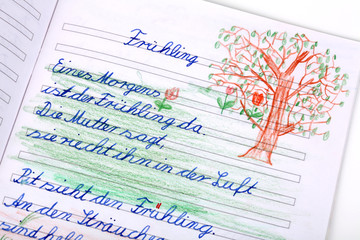 Frühling
Eines Morgens
ist der Frühling da.
Die Mutter sagt,
sie riecht ihn in der Luft
Pit sieht den Frühling.
An den Sträuchern
sind hell